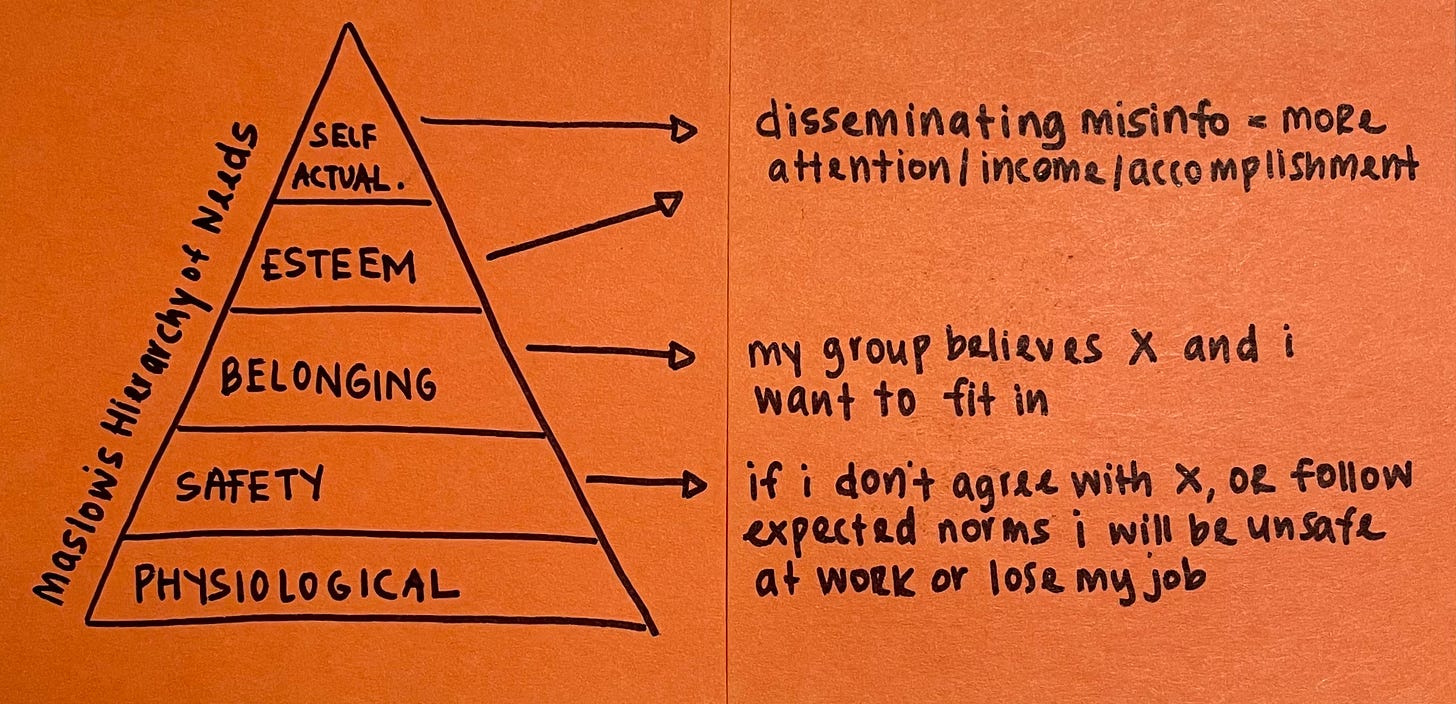 Maslow's Hierarchy of Needs
SELF
ACTUAL.
ESTEEM
BELONGING
SAFETY
PHYSIOLOGICAL
disseminating misinfo = more
attention/income/accomplishment
my group believes X and i
want to fit in
if i don't agree with X, or follow
expected norms i will be unsafe
at work or lose my job